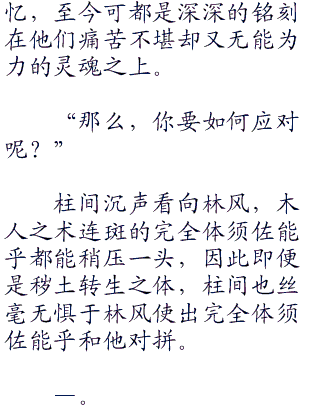 忆，至今可都是深深的铭刻
在他们痛苦不堪却又无能为
力的灵魂之上。
“那么，你要如何应对
呢？”
柱间沉声看向林风，木
人之术连斑的完全体须佐能
乎都能稍压一头，因此即便
是秽土转生之体，柱间也丝
毫无惧于林风使出完全体须
佐能乎和他对拼。
一。